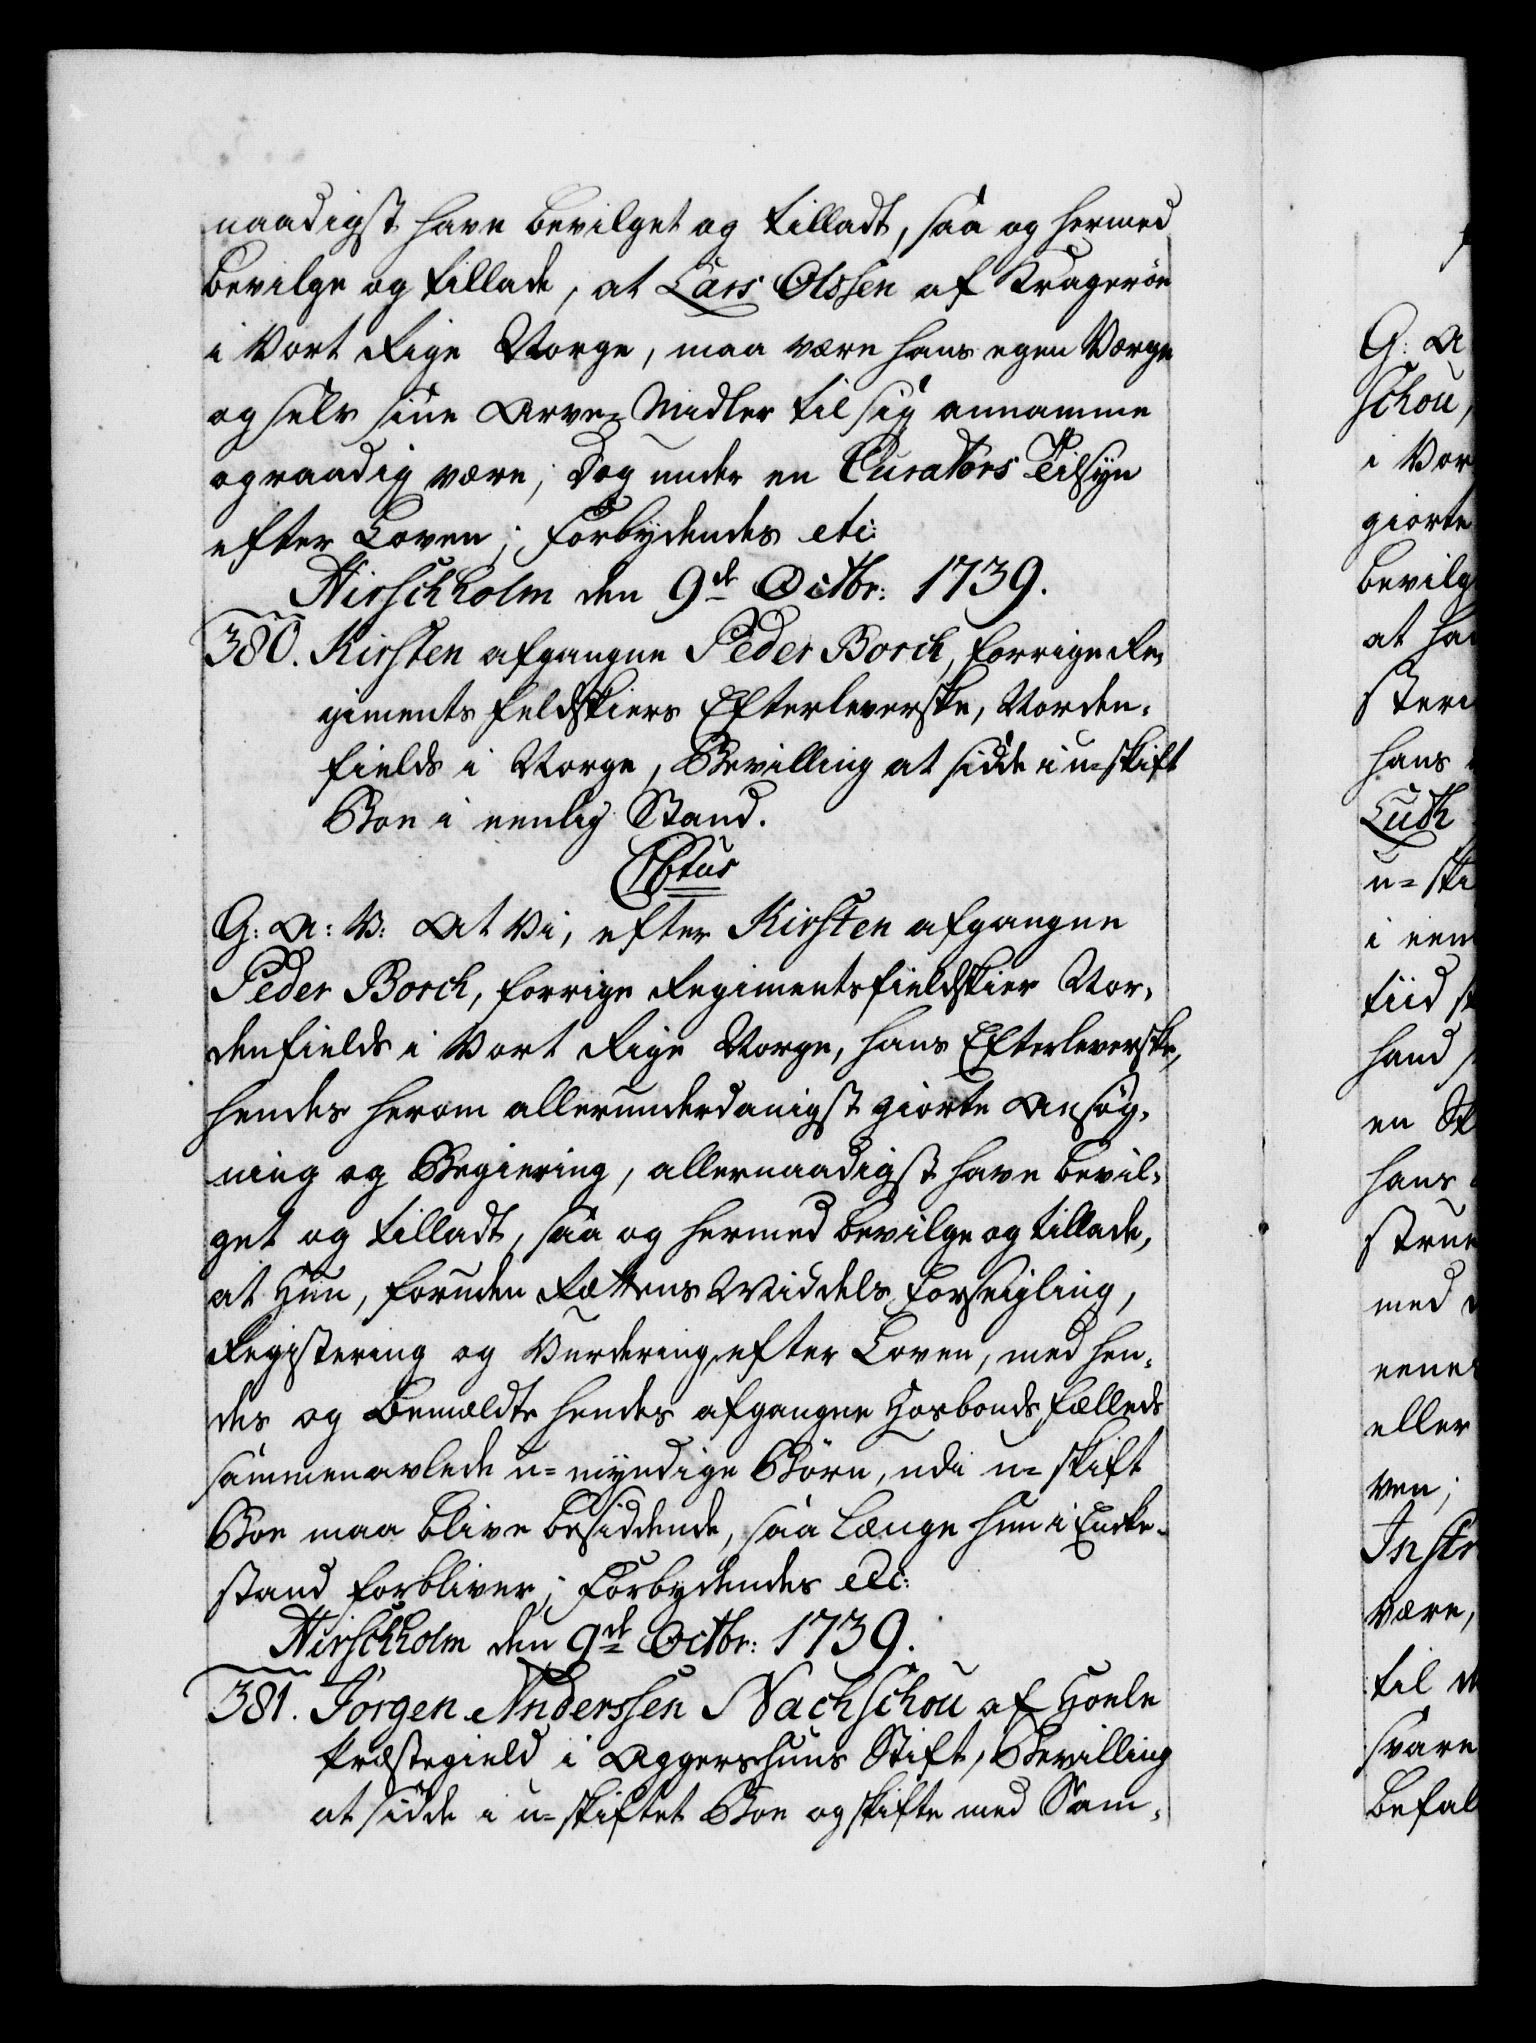 naadigst have bevilget og tilladt, saa og hermed
bevilge og tillade, at Lars Olssen af Kragerøe
i Vort Rige Norge, maa være hans egen Værge
og selv sine Arve-Midler til sig annamme
og raadig være; dog under en Curators Tilsyn
efter Loven; Forbydendes etc:
Hirschholm den 9de Octbr: 1739.
380. Kirsten afgangne Peder Borch, forrige Re-
giments feldskiers Efterleverske, Norden-
fields i Norge, Bevilling at sidde i u-skift
Boe i eenlig Stand.
C Vtus
G: A: V: At Vi, efter Kirsten afgangne
Peder Borch, forrige Regimentsfieldskier Nor-
denfields i Vort Rige Norge, hans Efterleverske,
hendes herom allerunderdanigst giorte Ansøg-
ning og Begiering, allernaadigst have bevil-
get og tilladt, saa og hermed bevilge og tillade,
at Hun, foruden Rættens Middels Forseigling,
Registering og Vurdering, efter Loven, med hen-
des og bemældte hendes afgangne Hosbonds fælleds
sammenavlede u-myndige Børn, udi u-skift
Boe maa blive besiddende, saa længe hun i Encke-
stand forbliver; Forbydendes etc:
Hirschholm den 9de Octbr: 1739.
381. Jørgen Anderssen Nachschou af Hoele
Præstegield i Aggershuus Stift, Bevilling
at sidde i u-skiftet Boe og skifte med Sam-
G: A
schou,
i Vor
giorte
bevilg
at ha
steri
hans
Luth
u-ski
i een
tiid s
hand
en Sk
hans
strue
med
eene
eller
ven;
Instr
være,
til
svare
befal